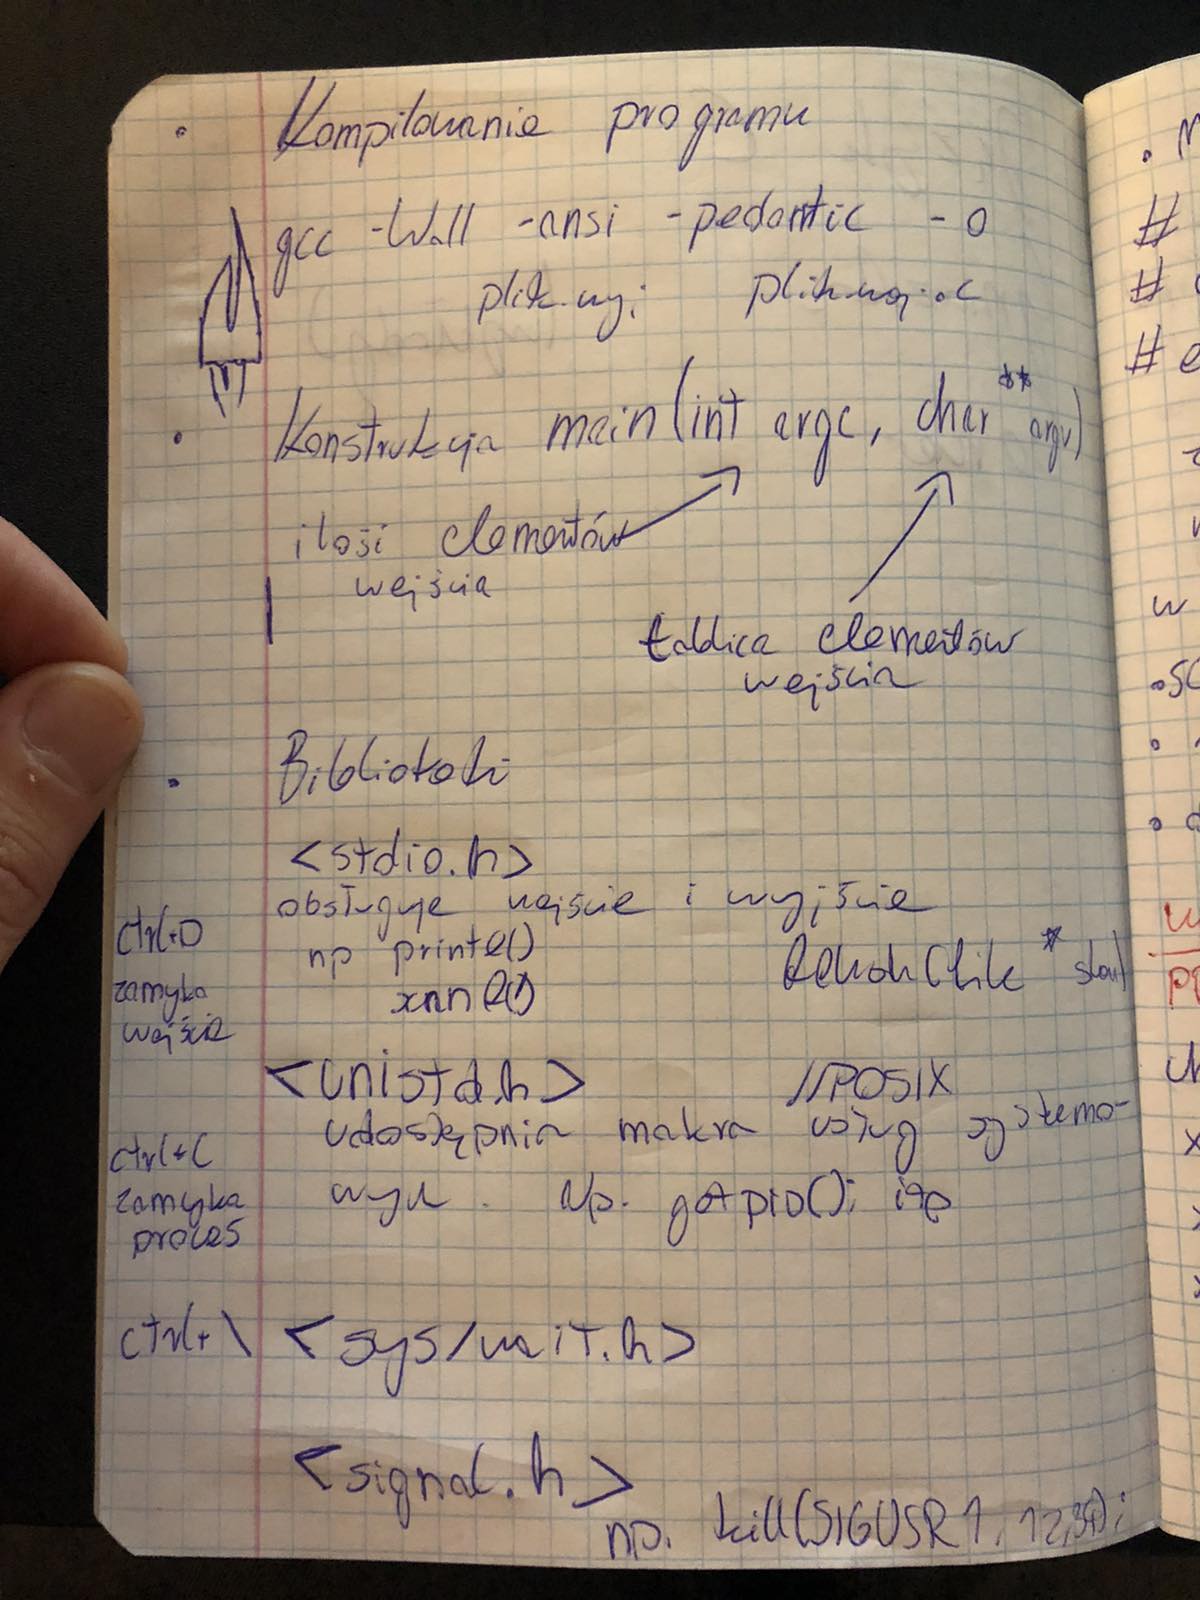 • Kompilowanie programu
gcc -Wall -ansi -pedantic -o
plik.wyj plik.wej.c
• Konstrukcja main(int argc, char ** argv)
ilość elementów
wejścia
tablica elementów
wejścia
• Biblioteki
<stdio.h>
obsługuje wejście i wyjście
np printf()
scanf()
ctrl+D
zamyka
wejście
<unistd.h> //POSIX
udostępnia makra usług systemo-
wych. Np. getpid(); itp
ctrl+C
zamyka
proces
ctrl+\ <sys/wait.h>
<signal.h>
np. kill(SIGUSR1,